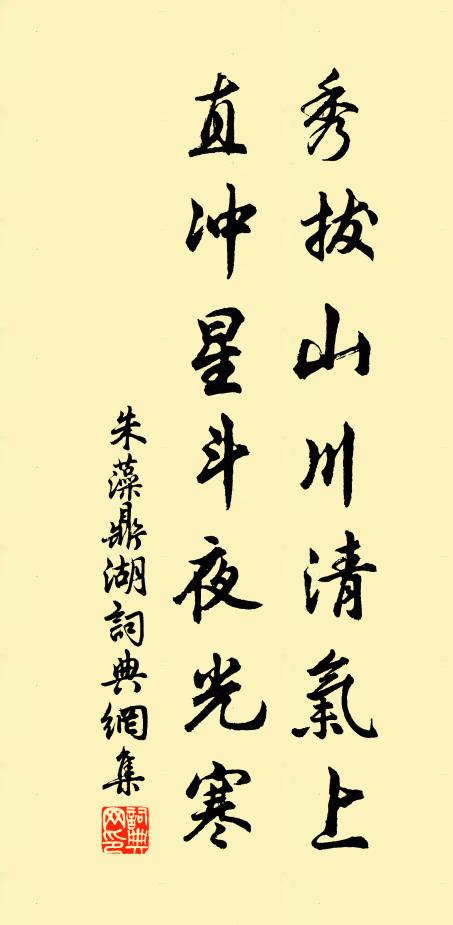 秀拔山川清氣上
直冲星斗夜光寒
朱藻鼎湖詞典網集
詞典網印